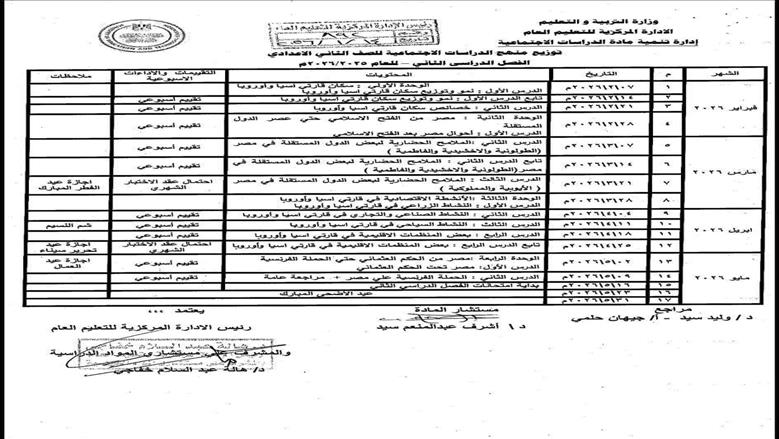 وزارة التربية و التعليم
الادارة المركزية للتعليم العام
إدارة تنمية مادة الدراسات الاجتماعية
رئيس الإدارة المركزية للتعليم العام
توزيع منهج الدراسات الاجتماعية للصف الثاني الاعدادي
الفصل الدراسى الثاني – للعام ٢٠٢٦/٢٠٢٥م
الشهر م التاريخ المحتويات التقييمات والاداءات الاسبوعية ملاحظات
فبراير ٢٠٢٦
١ ٢٠٢٦/٢/٠٧م الوحدة الأولي : سكان قارتي اسيا وأوروبا
الدرس الأول : نمو وتوزيع سكان قارتي اسيا وأوروبا تقييم أسبوعي
٢ ٢٠٢٦/٢/١٤م تابع الدرس الأول : نمو وتوزيع سكان قارتي اسيا وأوروبا تقييم أسبوعي
٣ ٢٠٢٦/٢/٢١م الدرس الثاني : خصائص سكان قارتي اسيا وأوروبا تقييم أسبوعي
٤ ٢٠٢٦/٢/٢٨م الوحدة الثانية : مصر من الفتح الاسلامي حتي عصر الدول المستقلة
الدرس الأول : أحوال مصر بعد الفتح الاسلامي تقييم أسبوعي
مارس ٢٠٢٦
٥ ٢٠٢٦/٣/٠٧م الدرس الثاني :الملامح الحضارية لبعض الدول المستقلة في مصر (الطولونية والاخشيدية والفاطمية ) تقييم أسبوعي
٦ ٢٠٢٦/٣/١٤م تابع الدرس الثاني : الملامح الحضارية لبعض الدول المستقلة في مصر(الطولونية والاخشيدية والفاطمية ) تقييم أسبوعي
٧ ٢٠٢٦/٣/٢١م الدرس الثالث : الملامح الحضارية لبعض الدول المستقلة في مصر ( الأيوبية والمملوكية ) احتمال عقد الاختبار الشهري اجازة عيد الفطر المبارك
٨ ٢٠٢٦/٣/٢٨م الوحدة الثالثة :الأنشطة الاقتصادية في قارتي اسيا وأوروبا
الدرس الأول : النشاط الزراعي في قارتي اسيا وأوروبا تقييم أسبوعي
ابريل ٢٠٢٦
٩ ٢٠٢٦/٤/٠٤م الدرس الثاني : النشاط الصناعي والتجاري في قارتي اسيا وأوروبا تقييم أسبوعي
١٠ ٢٠٢٦/٤/١١م الدرس الثالث : النشاط السياحي في قارتي اسيا وأوروبا تقييم أسبوعي شم النسيم
١١ ٢٠٢٦/٤/١٨م الدرس الرابع : بعض المنظمات الاقليمية في قارتي اسيا وأوروبا تقييم أسبوعي
١٢ ٢٠٢٦/٤/٢٥م تابع الدرس الرابع : بعض المنظمات الاقليمية في قارتي اسيا وأوروبا احتمال عقد الاختبار الشهري اجازة عيد تحرير سيناء
مايو ٢٠٢٦
١٣ ٢٠٢٦/٥/٠٢م الوحدة الرابعة :مصر من الحكم العثماني حتي الحملة الفرنسية
الدرس الأول: مصر تحت الحكم العثماني تقييم أسبوعي اجازة عيد العمال
١٤ ٢٠٢٦/٥/٠٩م الدرس الثاني : الحملة الفرنسية علي مصر + مراجعة عامة تقييم أسبوعي
١٥ ٢٠٢٦/٥/١٦م بداية امتحانات الفصل الدراسي الثاني
١٦ ٢٠٢٦/٥/٢٣م عيد الاضحي المبارك
١٧
مراجع
د/ وليد سيد – أ/ جيهان حلمي
مستشار المادة
د / أشرف عبدالمنعم سيد
يعتمد ،،،
رئيس الادارة المركزية للتعليم العام
والمشرف على مستشاري المواد الدراسية
د/ هالة عبد السلام خفاجي